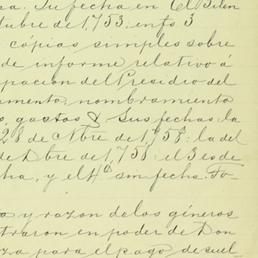 Su fecha en El Biten
tubre de 1,753; en fs 3
copias simples sobre
de informe relativo á
pacion del Presidio del
amento, nombramiento
gastos & Sus fechas: la
28 de Nbre de 1,758: la del
de Dbre de 1,758: el 3 es de
ha, y el 4º sin fecha Fo
y razon de los géneros
traron en poder de Don
za para el pago de suel